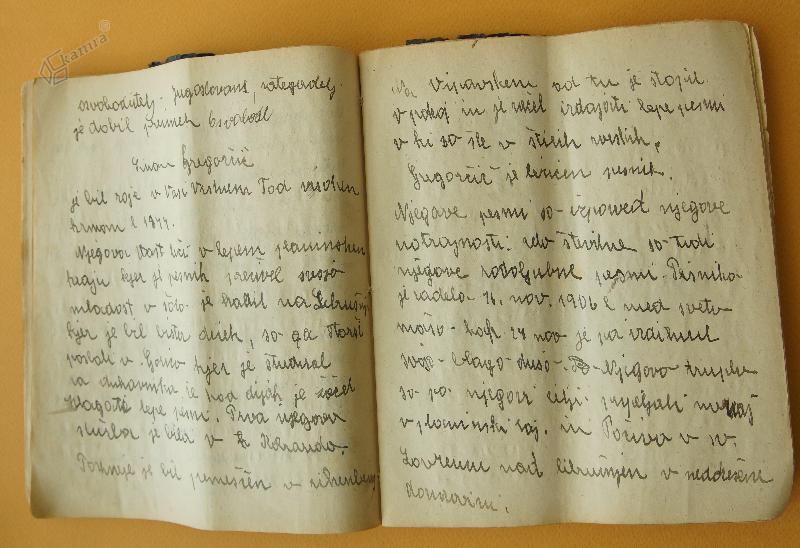 kamra
osvoboditelj. Jugoslovani, kategadelj
je dobil priimek Osvobodl
Simon Gregorčič
je bil roje v vasi Vrsnem Pod visokim
krnom l 1844.
Njegova vas leži v lepem planinskem
kraju kjer je pesnik preživel svojo
mladost v šolo je hodil na Libušnje
kjer je bil bister deček, so ga starši
poslali v Gorico kjer je študiral
za duhovnika že kod dijak je začel
zlagati lepe pesmi. Prva njegova
služba je bila v Kobaridu.
Pozneje je bil premeščen v rihenberg
Na Vipavskem od tu je stopil
v pokoj in je začel izdajati lepe pesmi
v ki so šle v štirih zveskih.
Gregorčič je liričen pesnik.
Njegove pesmi so izpoved njegove
notrajnosti. zelo številne so tudi
njegove rodoljubne pesmi. Pesnika
je zadela 16. nov. 1906 l med sveto
mašo kap. 24 nov je pa izdihnil
svojo blago dušo. Njegovo truplo
so po njegovi želji prepeljali nazaj
v planinski raj. in Počiva v sv.
Lovrencu nad libušnjem v